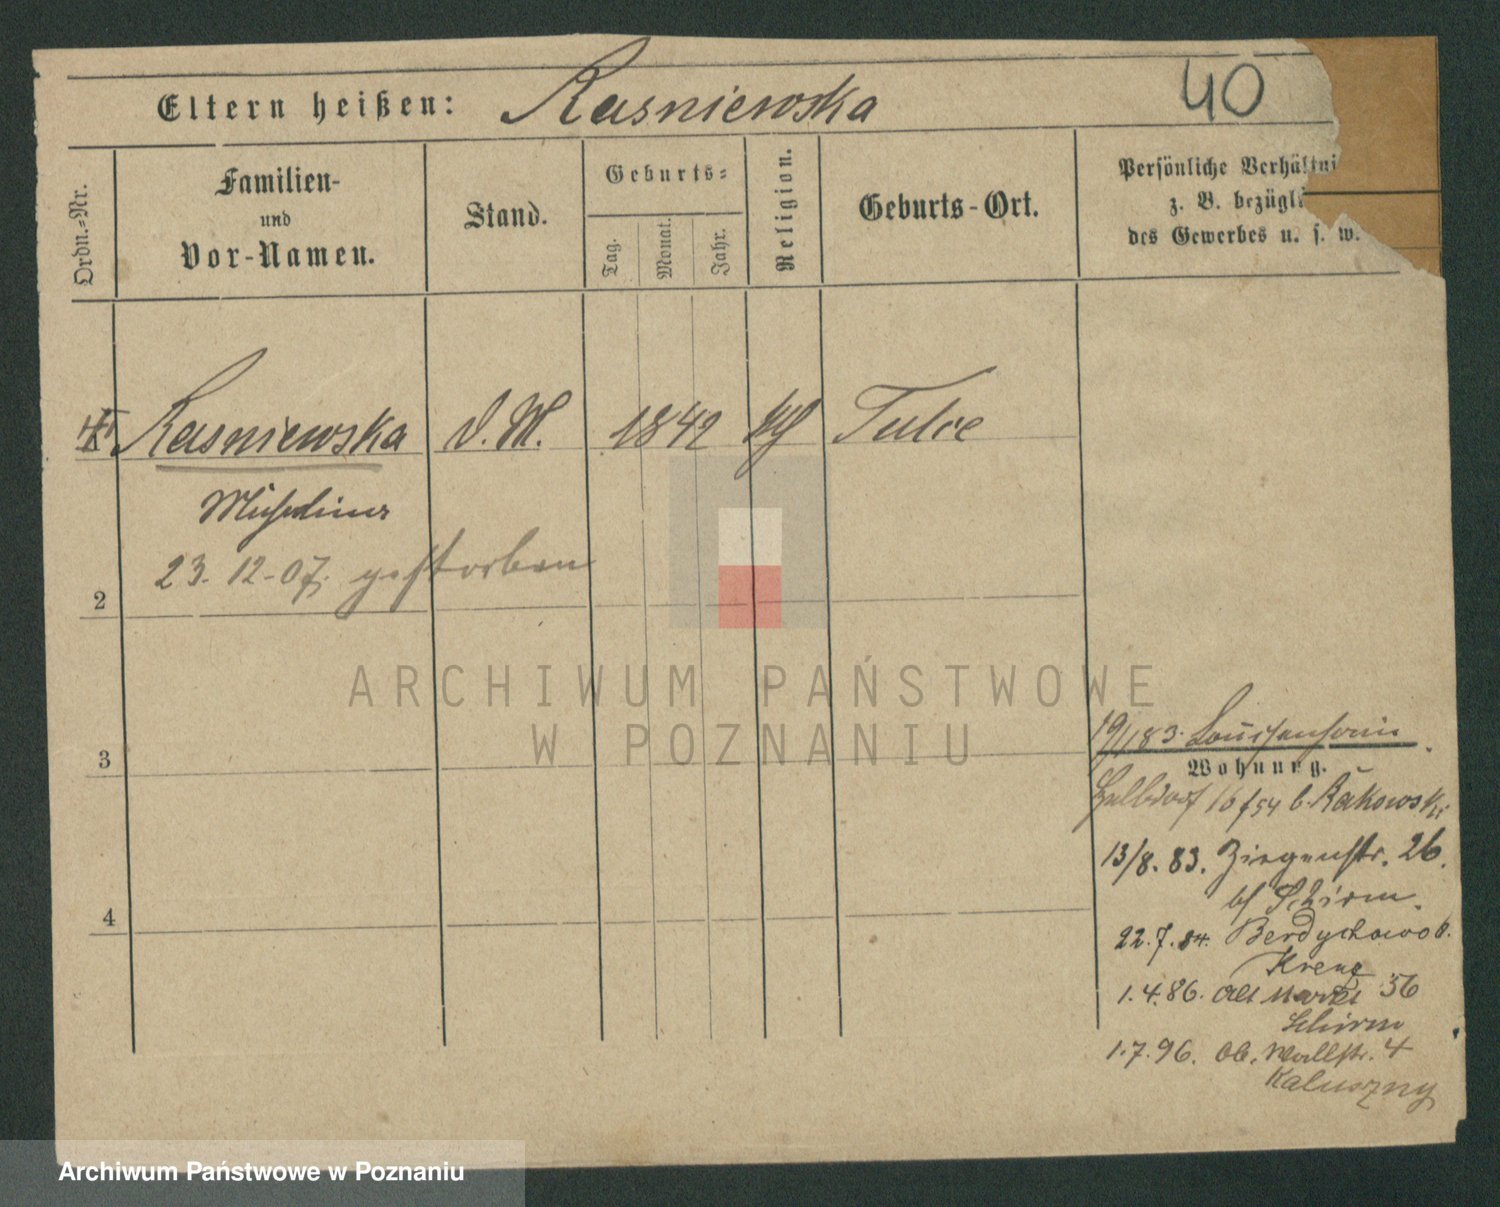 Eltern heißen: Rasniewska 40
Ordn.=Nr.
Familien-
und
Vor-Namen.
Stand.
Geburts=
Tag.
Monat.
Jahr.
Religion.
Geburts-Ort.
Persönliche Verhältni
z. B. bezügl
des Gewerbes u. s. w.
Rasniewska
1842
Tulce
23.12.07. gestorben
2
ARCHIWUM PAŃSTWOWE
W POZNANIU
3
Wohnung.
b. Rakowski
13/8.83. Ziegenstr. 26.
Schirm.
4
22.7.84. Berdychowo b.
Kreng
1.4.86. Alt Markt 56
Schirm
1.7.96. Ob. Wallstr. 4
Kaluszny
Archiwum Państwowe w Poznaniu